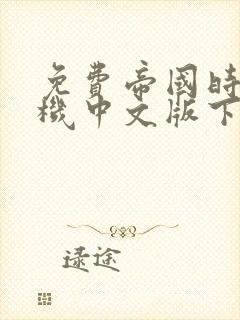 免費帝國時
機中文版下
逯途